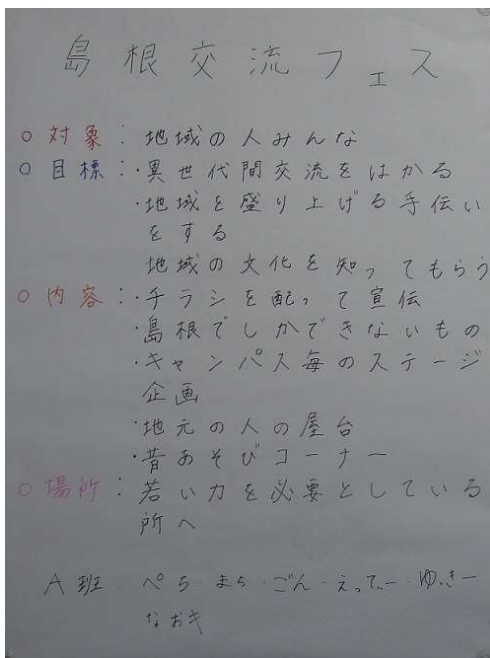 島根交流フェス
○対象：地域の人みんな
○目標：・異世代間交流をはかる
・地域を盛り上げる手伝い
をする
地域の文化を知ってもらう
○内容：・チラシを配って宣伝
・島根でしかできないもの
・キャンパス毎のステージ
企画
・地元の人の屋台
・昔あそびコーナー
○場所：若い力を必要としている
所へ
A班：ぺら・まら・ごん・えってぃー・ゆっきー
なおき